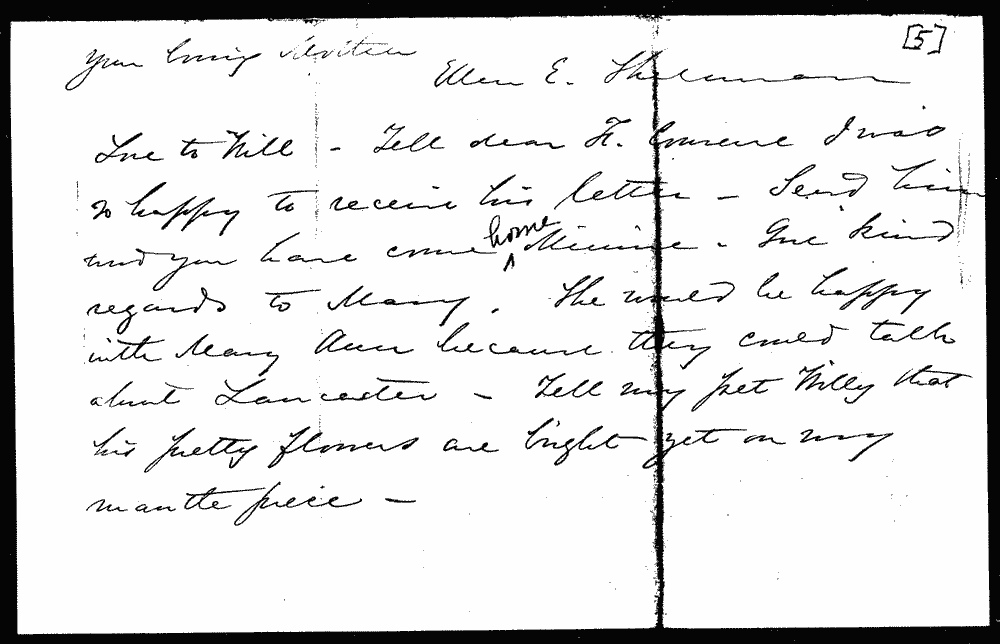 [5]
Your loving Mother
Ellen E. Sherman
Love to Will - Tell dear Fr. I was
so happy to receive his letter - Send him
and you have come home Minnie - Give kind
regards to Mary. She would be happy
with Mary Ann because they could talk
about Lancaster - Tell my pet Willy that
his pretty flowers are bright yet on my
mantle piece -